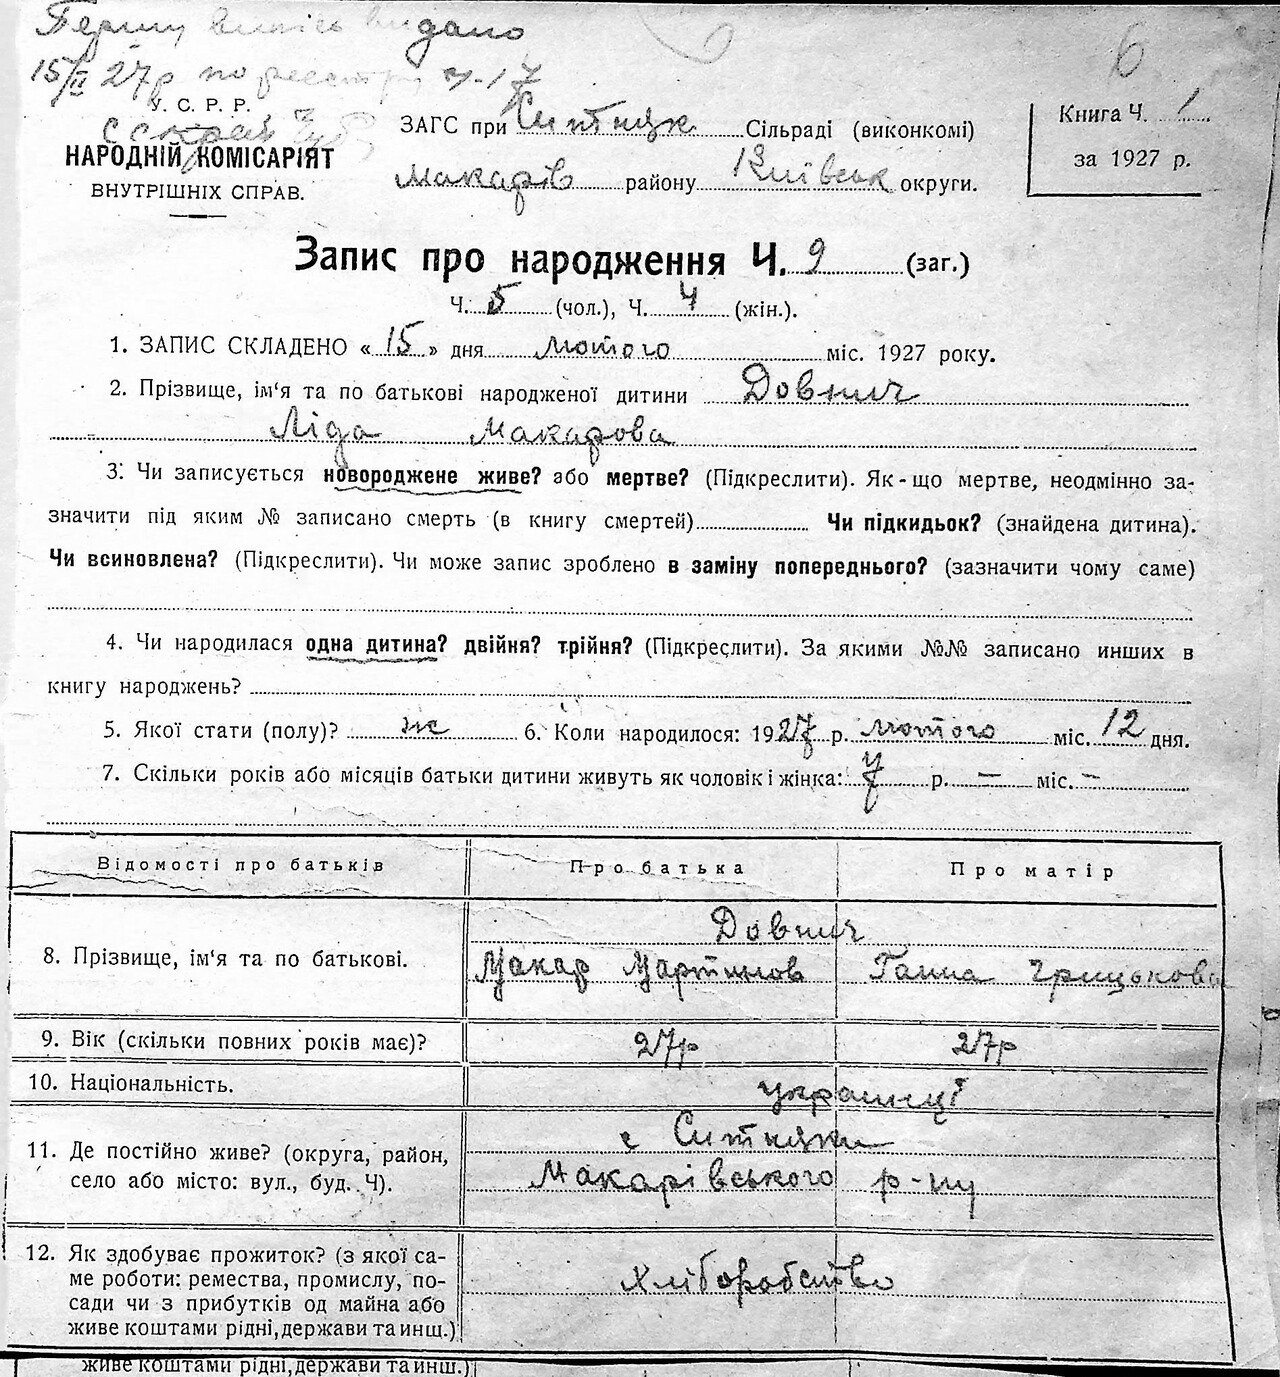 Першу випись видано
15/II 27р по реестру ч-17
У. С. Р. Р.
НАРОДНІЙ КОМІСАРІЯТ
ВНУТРІШНІХ СПРАВ.
ЗАГС при Ситняк Сільраді (виконкомі)
Макарів району Київськ округи.
6
Книга Ч. 1
за 1927 р.
Запис про народження Ч. 9 (заг.)
Ч. 5 (чол.), Ч. 4 (жін.).
1. ЗАПИС СКЛАДЕНО « 15 » дня лютого міс. 1927 року.
2. Прізвище, ім'я та по батькові народженої дитини Довнич
Ліда Макарова
3. Чи записується новороджене живе? або мертве? (Підкреслити). Як-що мертве, неодмінно за-
значити під яким № записано смерть (в книгу смертей) Чи підкидьок? (знайдена дитина).
Чи всиновлена? (Підкреслити). Чи може запис зроблено в заміну попереднього? (зазначити чому саме)
4. Чи народилася одна дитина? двійня? трійня? (Підкреслити). За якими №№ записано инших в
книгу народжень?
5. Якої стати (полу)? ж 6. Коли народилося: 1927 р. лютого міс. 12 дня.
7. Скільки років або місяців батьки дитини живуть як чоловік і жінка: 7 р. — міс. —
Відомості про батьків Про батька Про матір
Довнич
8. Прізвище, ім'я та по батькові. Макар Мартинов Ганна Грицькова
9. Вік (скільки повних років має)? 27р 27р
10. Національність. українці
11. Де постійно живе? (округа, район, с Ситняки
село або місто: вул., буд. Ч). Макарівського р-ну
12. Як здобуває прожиток? (з якої са-
ме роботи: ремества, промислу, по- хліборобство
сади чи з прибутків од майна або
живе коштами рідні, держави та инш.)
живе коштами рідні, держави та инш.)